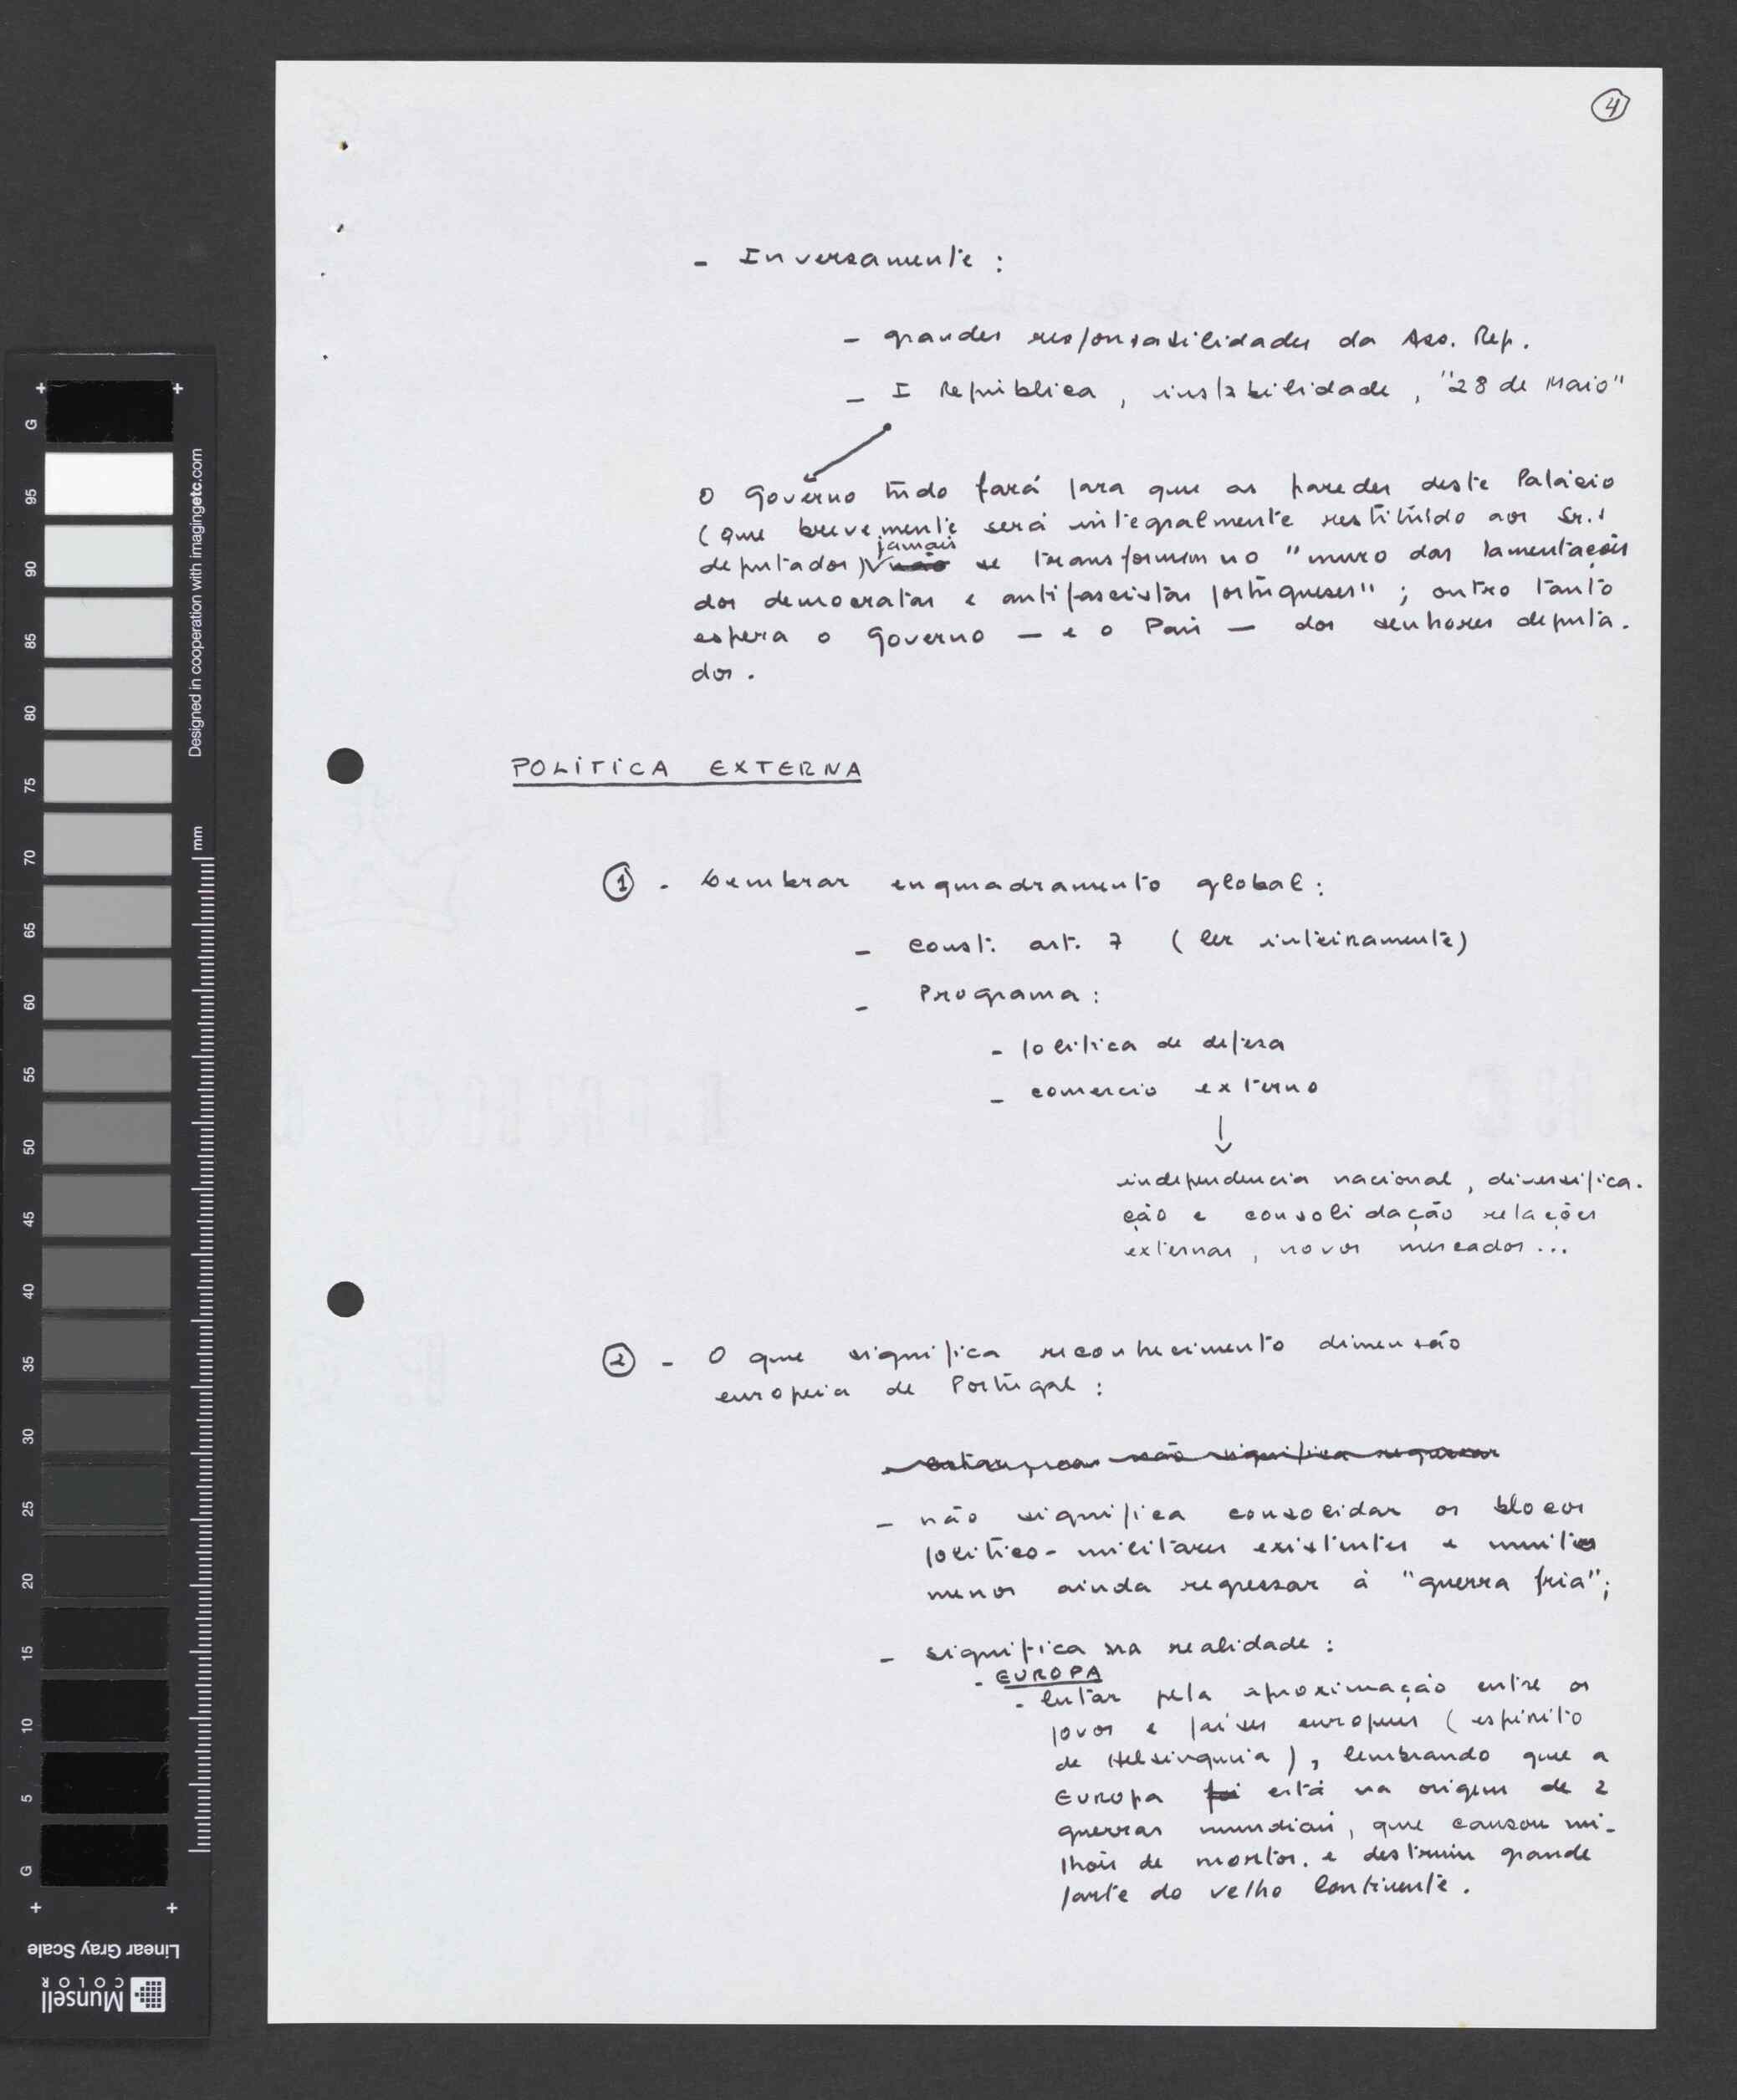 4
- Inversamente :
- grandes responsabilidades da Ass. Rep.
- I República, instabilidade, "28 de Maio"
O Govêrno tudo fará para que as paredes deste Palácio
(que brevemente será integralmente restituído aos Sr.s
jamais
deputados) não se transformem no "muro das lamentações
dos democratas e antifascistas portugueses" ; outro tanto
espera o Governo - e o País - dos senhores deputa-
dos.
POLÍTICA EXTERNA
1 - Lembrar enquadramento global :
- Const. art. 7 (ler inteiramente)
- Programa :
- política de defesa
- comercio externo
↓
independencia nacional, diversifica-
ção e consolidação relações
externas, novos mercados...
2 - O que significa reconhecimento dimensão
europeia de Portugal :
não significa regressar
- não significa consolidar os blocos
político-militares existentes e muito
menos ainda regressar à "guerra fria";
- significa na realidade :
- EUROPA
- lutar pela aproximação entre os
povos e países europeus (espírito
de Helsinquia), lembrando que a
Europa foi está na origem de 2
guerras mundiais, que causou mi-
lhões de mortos. e destruiu grande
parte do velho Continente.
Designed in cooperation with imagingetc.com
mm
G 95 90 85 80 75 70 65 60 55 50 45 40 35 30 25 20 15 10 5 G
Linear Gray Scale
Munsell
COLOR